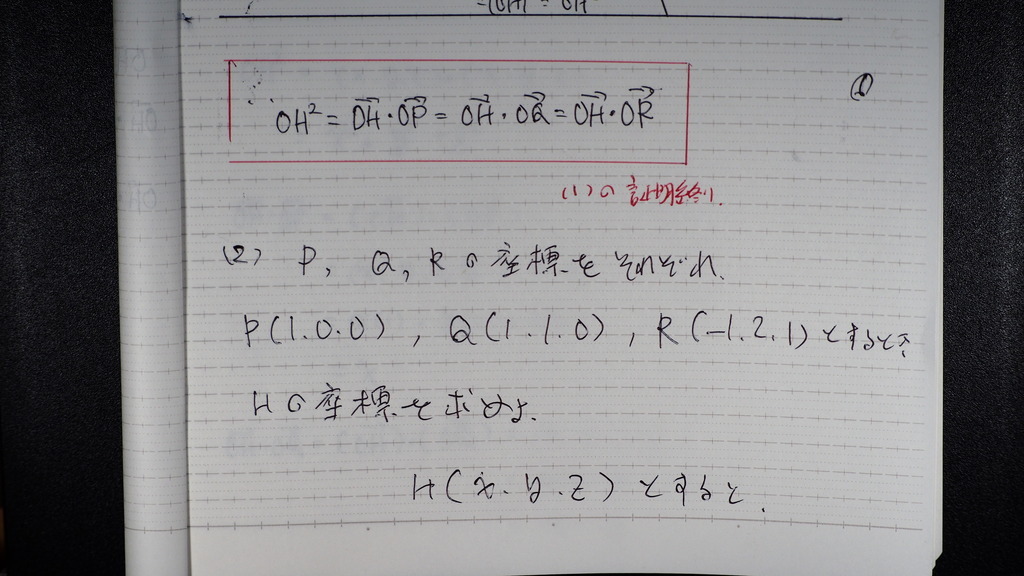 OH² = OH・OP = OH・OQ = OH・OR
(1)の証明終り.
(2) P, Q, Rの座標をそれぞれ.
P(1.0.0), Q(1.1.0), R(-1.2.1)とするとき
Hの座標を求めよ.
H(x.y.z)とすると.